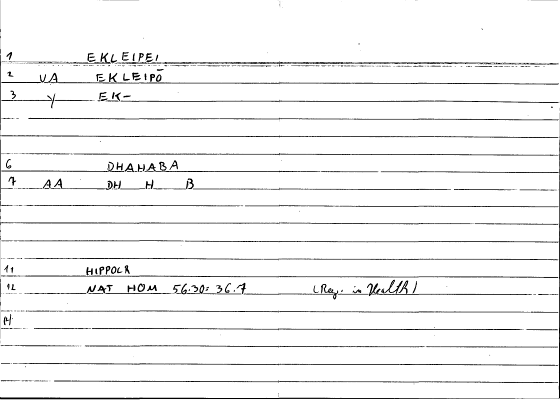 1 EKLEIPEI
2 UA EKLEIPŌ
3 Y EK-
6 DHAHABA
7 AA DH H B
11 HIPPOCR
12 NAT HOM 56.30: 36.7 (Reg. in Health)
14